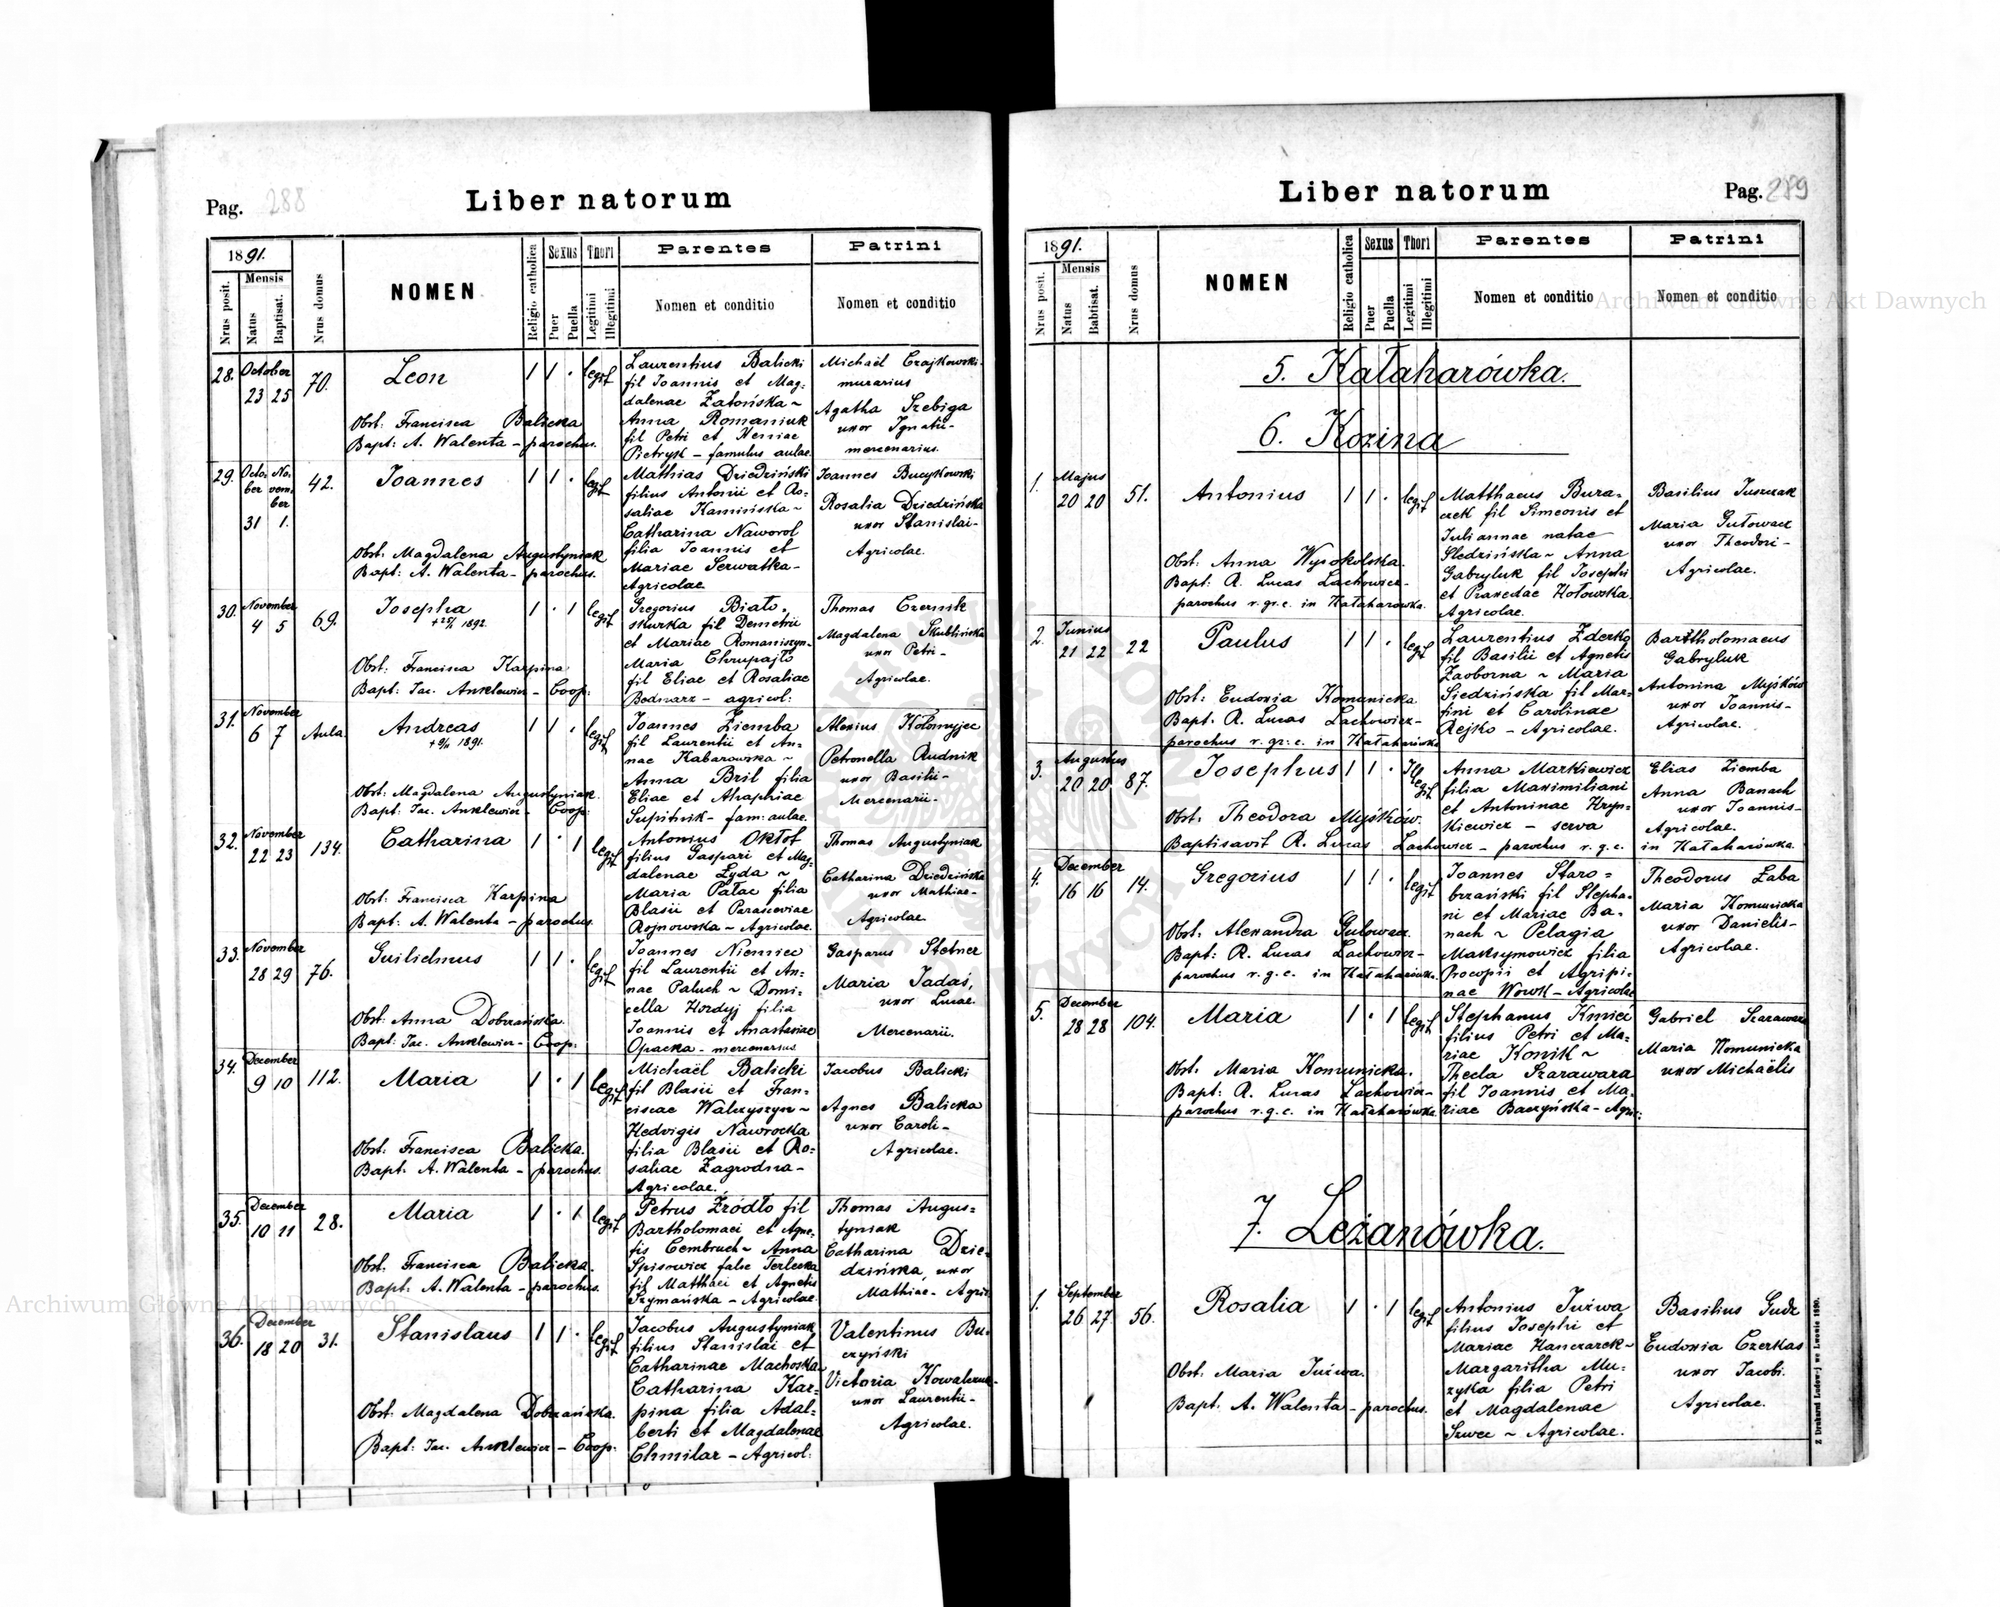 Pag. 288
Liber natorum
1891.
Nrus posit.
Mensis
Natus
Baptisat.
Nrus domus
NOMEN
Religio catholica
Sexus
Puer
Puella
Thori
Legitimi
Illegitimi
Parentes
Nomen et conditio
Patrini
Nomen et conditio
28. October 23 25 70.
Leon
1 1 . legit
Obst: Francisca Balicka
Bapt: A. Walenta - parochus.
Laurentius Balicki
fil Joannis et Mag:
dalenae Zatońska ~
Anna Romaniuk
fil Petri et Xeniae
Pietryk - famulus aulae.
Michaël Czajkowski
murarius
Agatha Szebiga
uxor Ignatii -
mercenarius.
29. Octo: ber 31 No: vem: ber 1. 42.
Joannes
1 1 . legit
Obst: Magdalena Augustyniak
Bapt: A. Walenta - parochus.
Mathias Dziedziński
filius Antonii et Ro-
saliae Kamińska ~
Catharina Naworol
filia Joannis et
Mariae Serwatka -
Agricolae.
Joannes Bucykowski
Rosalia Dziedzińska
uxor Stanislai -
Agricolae.
30. November 4 5 69.
Josepha
1 . 1 legit
Obst: Francisca Karpina
Bapt: Jac. Anklewicz - Coop:
Gregorius Biało-
skurka fil Demetrii
et Mariae Romaniszyn -
Maria Chrupajło
fil Eliae et Rosaliae
Bednarz - agricol:
Thomas Czernik
Magdalena Skublińska
uxor Petri -
Agricolae.
31. November 6 7 Aula
Andreas
1 1 . legit
Obst: Magdalena Augustyniak.
Bapt: Jac. Anklewicz - Coop:
Joannes Ziemba
fil Laurentii et An-
nae Kabarowska ~
Anna Bril filia
Eliae et Ahaphiae
Supitnik - fam: aulae.
Alexius Kołomyjec
Petronella Rudnik
uxor Basilii -
Mercenarii -
32. November 22 23 134.
Catharina
1 . 1 legit
Obst: Francisca Karpina
Bapt: A. Walenta - parochus.
Antonius Oktof
filius Gaspari et Mag-
dalenae Łyda ~
Maria Pałac filia
Blasii et Parasceviae
Rojnowska ~ Agricolae.
Thomas Augustyniak
Catharina Dziedzińska
uxor Mathiae -
Agricolae
33. November 28 29 76.
Guilielmus
1 1 . legit
Obst: Anna Dobrzańska.
Bapt: Jac. Anklewicz - Coop:
Joannes Niemiec
fil Laurentii et An-
nae Paluch ~ Domi-
cella Hordyj filia
Joannis et Anastasiae
Opacka - mercenarius.
Gasparus Stetner
Maria Jadaś,
uxor Lucae.
Mercenarii.
34. December 9 10 112.
Maria
1 . 1 legit
Obst: Francisca Balicka.
Bapt. A. Walenta - parochus.
Michaël Balicki
fil Blasii et Fran-
ciscae Walczyszyn ~
Hedvigis Nawrocka
filia Blasii et Ro-
saliae Zagrodna -
Agricolae.
Jacobus Balicki
Agnes Balicka
uxor Caroli -
Agricolae.
35. December 10 11 28.
Maria
1 . 1 legit
Obst. Francisca Balicka.
Bapt. A. Walenta - parochus.
Petrus Źródło fil
Bartholomaei et Agne-
tis Cembruch ~ Anna
Spisowicz false Terlecka
fil Matthaei et Agnetis
Szymańska - Agricolae.
Thomas Augus=
tyniak
Catharina Dzie-
dzińska, uxor
Mathiae - Agric
36. December 18 20 31.
Stanislaus
1 1 . legit
Obst. Magdalena Dobrzańska.
Bapt: Jac. Anklewicz - Coop:
Jacobus Augustyniak
filius Stanislai et
Catharinae Machoska
Catharina Kar=
pina filia Adal=
berti et Magdalenae
Chmilar - Agricol:
Valentinus Bu-
czyński
Victoria Kowalczuk -
uxor Laurentii -
Agricolae.
Pag. 289
Liber natorum
1891.
Nrus posit.
Mensis
Natus
Babtisat.
Nrus domus
NOMEN
Religio catholica
Sexus
Puer
Puella
Thori
Legitimi
Illegitimi
Parentes
Nomen et conditio
Patrini
Nomen et conditio
5. Kałaharówka.
6. Kozina
1. Majus 20 20 51.
Antonius
1 1 . legit
Obst: Anna Wysokolska.
Bapt: R. Lucas Lachowicz -
parochus r. gr. c. in Kałaharówka.
Matthaeus Bura-
czek fil Simeonis et
Juliannae natae
Śledzińska ~ Anna
Gabryluk fil Josephi
et Praxedae Hołowska.
Agricolae.
Basilius Juszczak
Maria Gutowacz
uxor Theodori -
Agricolae.
2. Junius 21 22 22
Paulus
1 1 . legit
Obst: Eudoxia Komanicka
Bapt. R. Lucas Lachowicz -
parochus r. gr. c. in Kałaharówka
Laurentius Zderko
fil Basilii et Agnetis
Zaoborna ~ Maria
Siedzińska fil Mar-
tini et Carolinae
Rejko - Agricolae.
Bartholomaeus
Gabryluk
Antonina Myśków
uxor Joannis -
Agricolae.
3. Augustus 20 20 87.
Josephus
1 1 . Ille git
Obst. Theodora Myśków.
Baptisavit R. Lucas Lachowicz - parochus r. g. c.
Anna Markiewicz
filia Maximiliani
et Antoninae Hryn-
kiewicz - serva
Elias Ziemba
Anna Banach
uxor Joannis -
Agricolae.
in Kałaharówka.
4. December 16 16 14.
Gregorius
1 1 . legit
Obst. Alexandra Gutowacz.
Bapt: R. Lucas Lachowicz -
parochus r. g. c. in Kałaharówka.
Joannes Staro=
brzański fil Stepha-
ni et Mariae Ba-
nach ~ Pelagia
Maksymowicz filia
Procopii et Agripi-
nae Wowk - Agricolae
Theodorus Łaba
Maria Komunicka
uxor Danielis -
Agricolae.
5. December 28 28 104.
Maria
1 . 1 legit
Obst. Maria Komunicka.
Bapt: R. Lucas Lachowicz -
parochus r. g. c. in Kałaharówka.
Stephanus Kmieć
filius Petri et Ma-
riae Konik ~
Thecla Szarawara
fil Joannis et Ma-
riae Baczyńska - Agric:
Gabriel Szarawara
Maria Komunicka
uxor Michaëlis
7. Leżanówka.
1. September 26 27 56.
Rosalia
1 . 1 legit
Obst. Maria Juźwa.
Bapt. A. Walenta - parochus.
Antonius Juźwa
filius Josephi et
Mariae Hanczarek ~
Margaritha Mu-
zyka filia Petri
et Magdalenae
Szwec ~ Agricolae.
Basilius Sudz
Eudoxia Czerkas
uxor Jacobi.
Agricolae.
Z Drukarni Ludowej we Lwowie 1890.
Archiwum Główne Akt Dawnych
Archiwum Główne Akt Dawnych